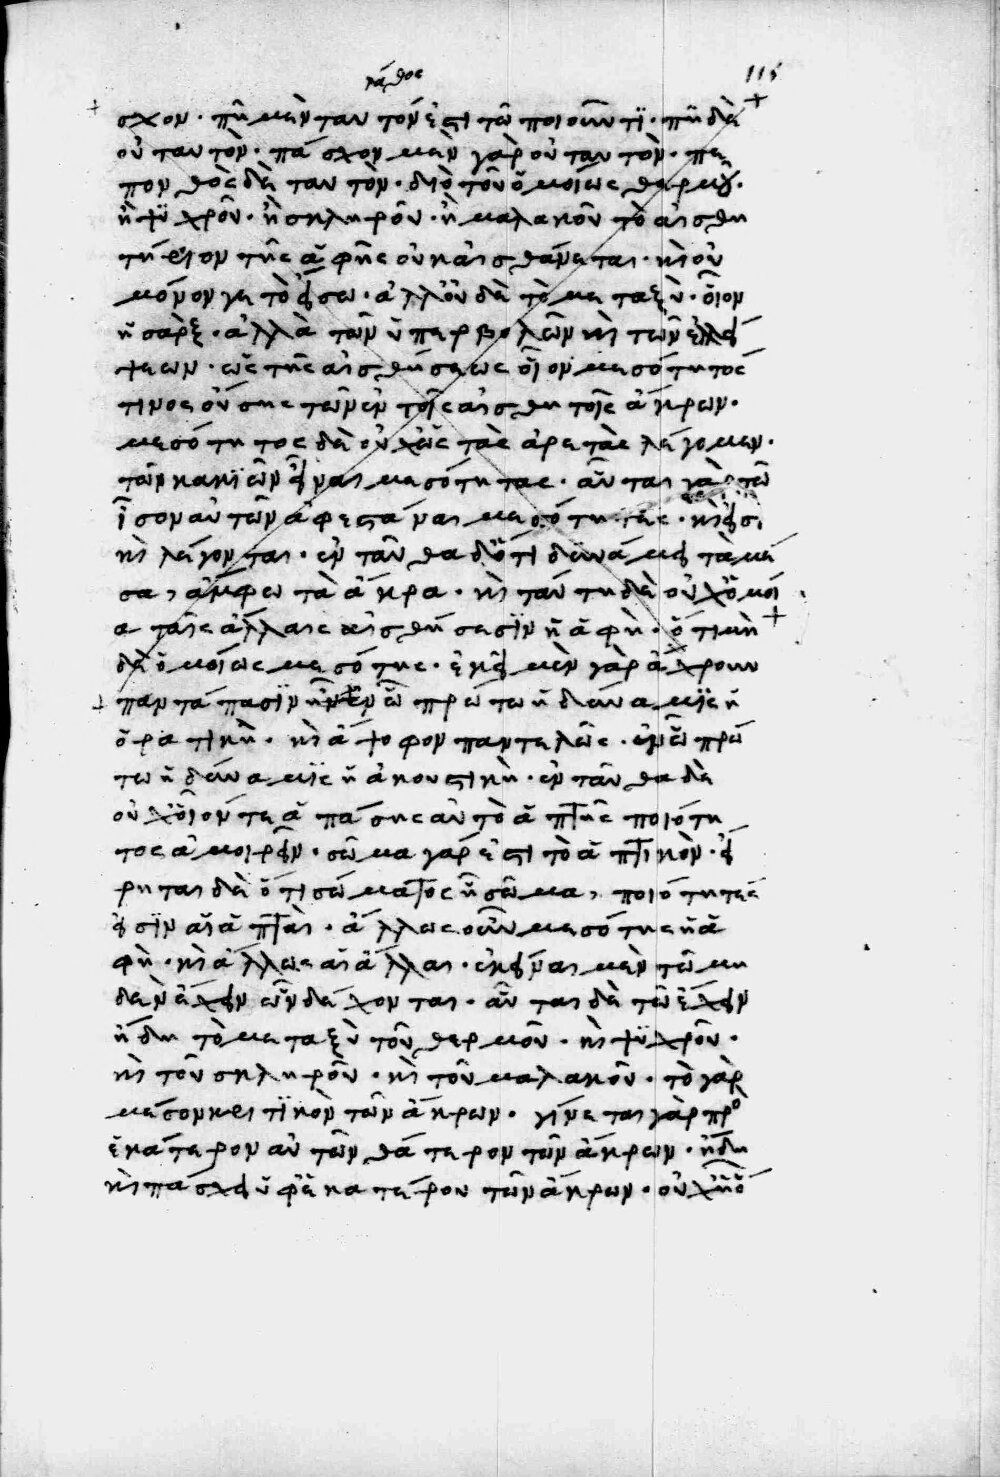 λάθος 115
σχον · πῆ μὲν ταυτόν ἐστι τῶ ποιοῦντι · πῆ δὲ
οὐ ταυτὸν · πάσχον μὲν γὰρ οὐ ταυτὸν · πε
πονθὸς δὲ ταυτὸν · διὸ τοῦ ὁμοίως θερμοῦ ·
ἢ ψυχροῦ · ἢ σκληροῦ · ἢ μαλακοῦ τὸ αἰσθη
τήριον τῆς ἁφῆς οὐκ αἰσθάνεται · καὶ οὐ
μόνον γε τὸ ἔσω · ἀλλ' οὐδὲ τὸ μεταξὺ · οἷον
ἡ σάρξ · ἀλλὰ τῶν ὑπερβολῶν καὶ τῶν ἐλλεί
ψεων · ὡς τῆς αἰσθήσεως οἷον μεσότητός
τινος οὔσης τῶν ἐν τοῖς αἰσθητοῖς ἄκρων ·
μεσότητος δὲ οὐχ ὡς τὰς ἀρετὰς λέγομεν ·
τῶν κακιῶν εἶναι μεσότητας · αὗται γὰρ τῶ
ἴσον αὐτῶν ἀφεστάναι μεσότητες · καὶ εἰσι
καὶ λέγονται · ἐνταῦθα διότι δυνάμει τὰ μέ
σα, ἄμφω τὰ ἄκρα · καὶ ταύτη δὲ οὐχ ὁμοί
α ταῖς ἄλλαις αἰσθήσεσιν ἡ ἁφὴ · ὅτι μὴ
δὲ ὁμοίως μεσότης · ἐκεῖ μὲν γὰρ ἄχρουν
παντάπασιν ἦν ἐν ὧ πρώτω ἡ δύναμις ἡ
ὁρατικὴ · καὶ ἄψοφον παντελῶς · ἐν ὧ πρώ
τω ἡ δύναμις ἡ ἀκουστικὴ · ἐνταῦθα δὲ
οὐχ οἷόν τε ἁπάσης αὐτὸ ἁπτῆς ποιότη
τος ἀμοιρεῖν · σῶμα γάρ ἐστι τὸ ἁπτικὸν · εἴ
ρηται δὲ ὅτι σώματος ἧ σῶμα, ποιότητές
εἰσιν αἱ ἁπταὶ · ἄλλως οὖν μεσότης ἡ ἁ
φὴ · καὶ ἄλλως αἱ ἄλλαι · ἐκεῖναι μὲν τῶ μη
δὲν ἔχειν ὧν δέχονται · αὕται δὲ τῶ ἔχειν
ἤδη τὸ μεταξὺ τοῦ θερμοῦ · καὶ ψυχροῦ ·
καὶ τοῦ σκληροῦ · καὶ τοῦ μαλακοῦ · τὸ γὰρ
μέσον κριτικὸν τῶν ἄκρων · γίνεται γὰρ πρὸ
ἑκάτερον αὐτῶν θάτερον τῶν ἄκρων · ἤδη
καὶ πάσχει ὑφ' ἑκατέρου τῶν ἄκρων · οὐχ ἧ ὅ